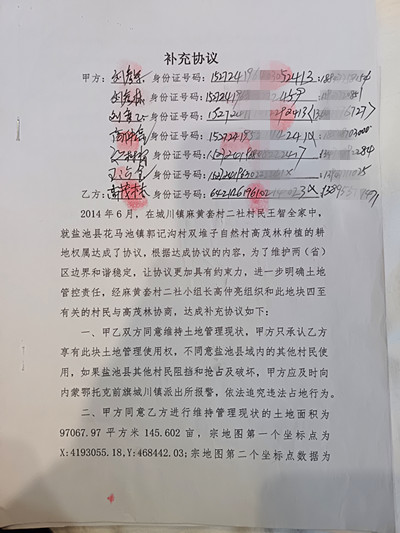 补充协议
甲方： 身份证号码：
身份证号码：
身份证号码：
身份证号码：
身份证号码：
身份证号码：
乙方： 身份证号码：
2014 年 6 月，在城川镇麻黄套村二社村民王智全家中，
就盐池县花马池镇郭记沟村双堆子自然村高茂林种植的耕
地权属达成了协议，根据达成协议的内容，为了维护两（省）
区边界和谐稳定，让协议更加具有约束力，进一步明确土地
管控责任，经麻黄套村二社小组长高仲亮组织和此地块四至
有关的村民与高茂林协商，达成补充协议如下：
一、甲乙双方同意维持土地管理现状，甲方只承认乙方
享有此块土地管理使用权，不同意盐池县域内的其他村民使
用，如果盐池县其他村民阻挡和抢占及破坏，甲方应及时向
内蒙鄂托克前旗城川镇派出所报警，依法追究违法占地行为。
二、甲方同意乙方进行维持管理现状的土地面积为
97067.97 平方米 145.602 亩，宗地图第一个坐标点为
X:4193055.18,Y:468442.03；宗地图第二个坐标点数据为